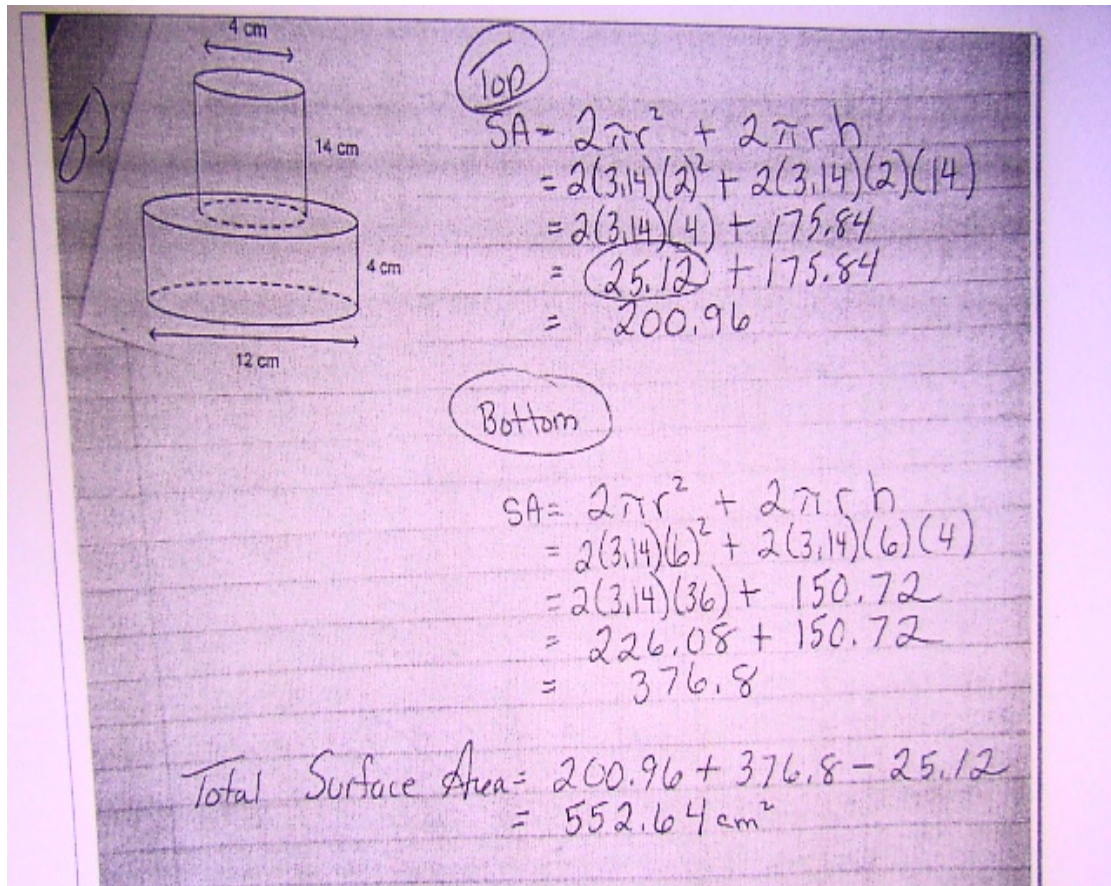 4 cm
14 cm
4 cm
12 cm
Top
SA = 2πr² + 2πrh
= 2(3.14)(2)² + 2(3.14)(2)(14)
= 2(3.14)(4) + 175.84
= 25.12 + 175.84
= 200.96
Bottom
SA = 2πr² + 2πrh
= 2(3.14)(6)² + 2(3.14)(6)(4)
= 2(3.14)(36) + 150.72
= 226.08 + 150.72
= 376.8
Total Surface Area = 200.96 + 376.8 - 25.12
= 552.64 cm²